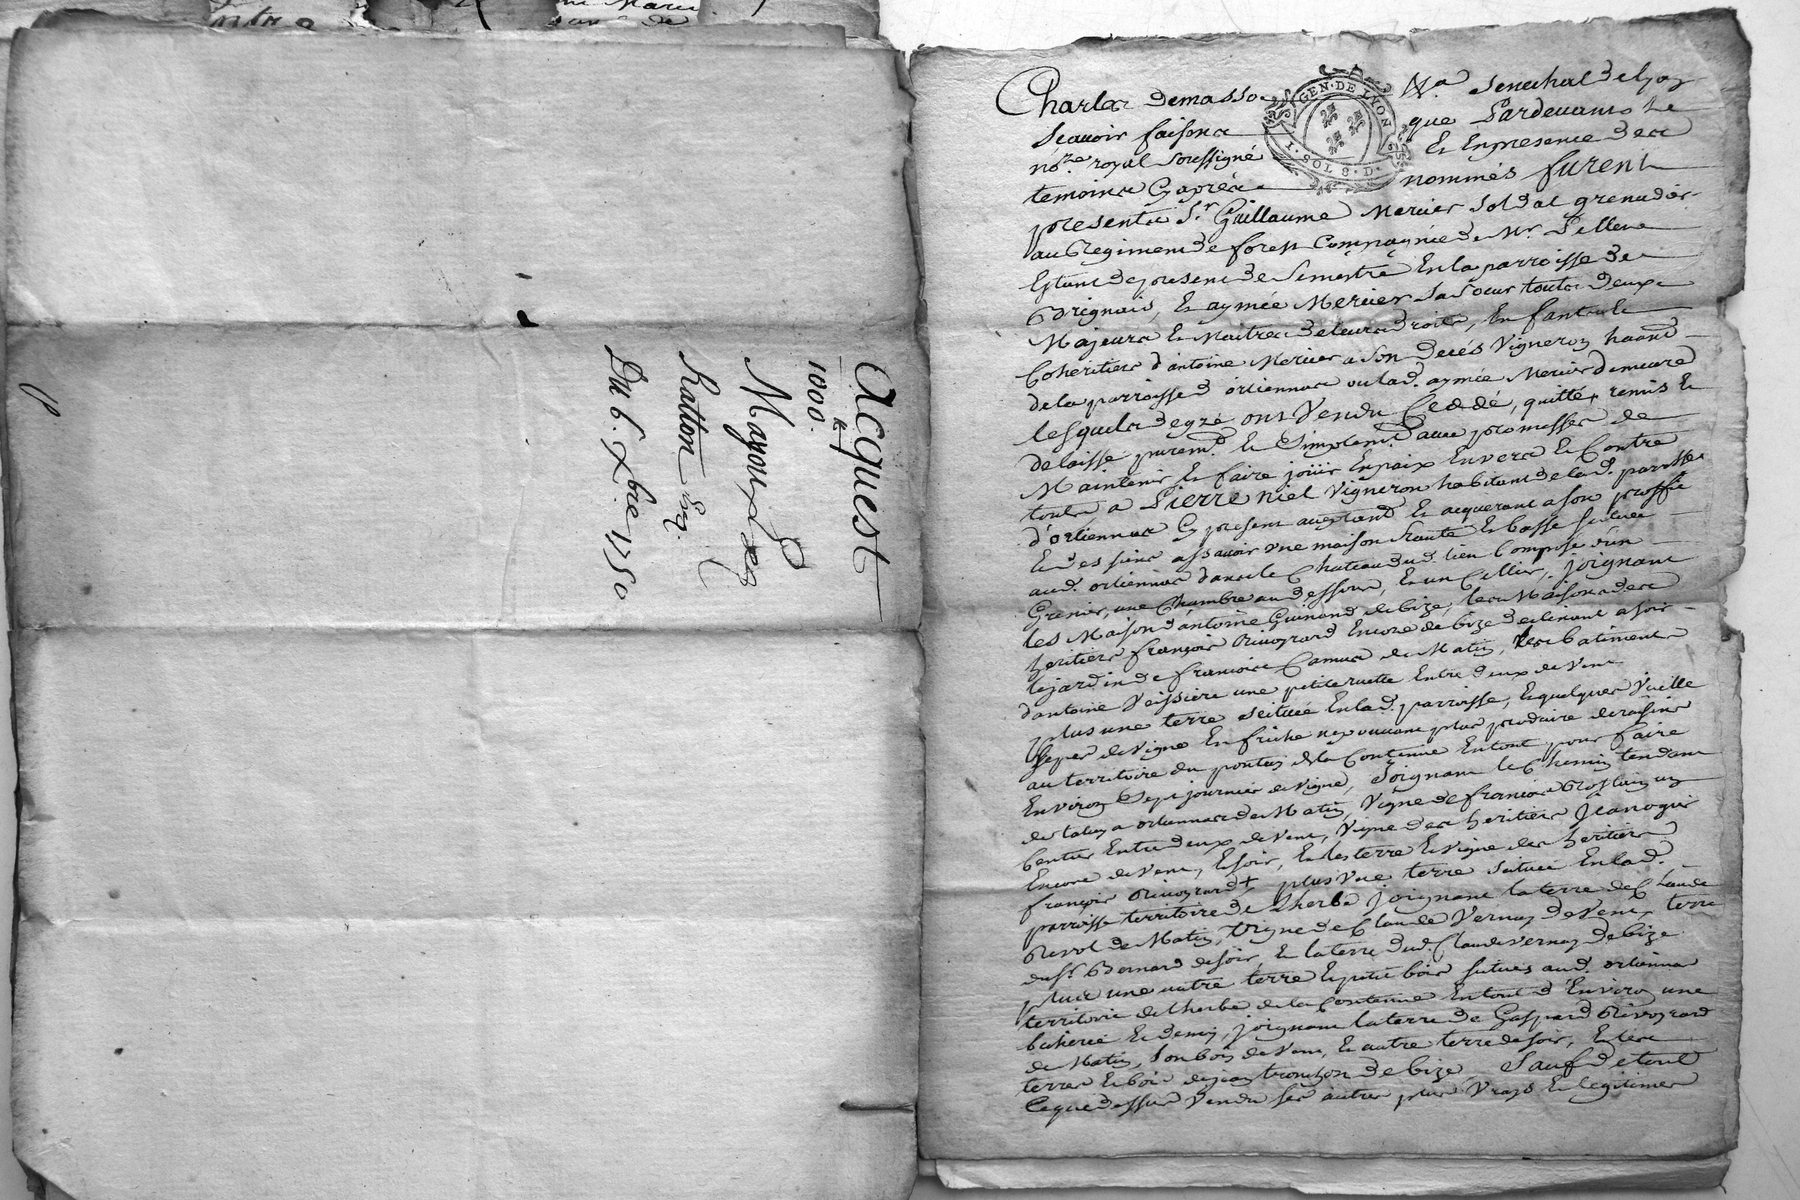 Acquest
1000.
Mayoux
Ratton
Du 6. Xbre 1750
GEN · DE LYON
1 · SOL 8 · D ·
Charles demasso Sénéchal de lyon
Scavoir faisons que Pardevant le
nore royal soussigné Et En presence des
temoins Cy après nommés furent
presents Sr. Guillaume Mercier soldat grenadier
au Regiment de forest Compagnie de Mr. Pellene
Estant de present de Semestre En la parroisse de
Brignais, Et aymée Mercier sa soeur touts deux
Majeurs Et Maitres de leurs droits, Enfants Et
Coheritiers d'antoine Mercier a son decés Vigneron habitt
de la parroisse d'orliennas ou lad. aymée Mercier demeure
lesquels de gré ont Vendu Ceddé, quitté, remis Et
delaissé puremt. Et Simplemt. avec promesses de
Maintenir Et faire jouïr En paix Envers Et Contre
touts a Pierre niel Vigneron habitant de lad. parroisse
d'orliennas Cy present acceptant Et acquerant a son proffit
Et des siens assavoir Une maison haute Et basse scituée
aud. orliennas dans le Chateau dud. lieu Composée d'un
Grenier, une Chambre au dessous, Et un Cellier, joignant
les Maison d'antoine Guinand de bize, les Maisons des
heritiers françois Rivoyrard Encore de bize declinant a soir
le jardin de françoise Camus de Matin, les batiments
d'antoine Veissiere une petite ruette Entre deux de Vent
plus une terre scituée En lad. parroisse, Et quelques Vieille
seps de Vigne En friche ne pouvant plus produire de raisins
au territoire du pontus de la Contenue En tout pour faire
Environ Sept journées de Vigne, Joignant le Chemin tendant
de taluy a orliennas de Matin, Vigne de françois
Entre deux de Vent, Vigne des heritiers Jean ogier
Encore de Vent, Et soir, Et les terre Et Vigne des heritiers
françois Rivoyrard + plus Une terre scituée En lad.
parroisse territoire de Lherbe joignant la terre de Claude
Revol de Matin, Vigne de Claude Vernay de Vent, terre
du Sr. Bernard de soir, Et la terre dud. Claude Vernay de bize
plus une autre terre Et petit bois scitués aud. orliennas
territoire de lherbe de la Contenue En tout d'Environ une
bicherée Et demy, joignant la terre de Gaspard Rivoyrard
de Matin, son bois de Vent, Et autre terre de soir, Et les
terres Et bois de jean tronchon de bize Sauf de tout
Ce que dessus Vendu ses autres plus Vrays Et legitimes